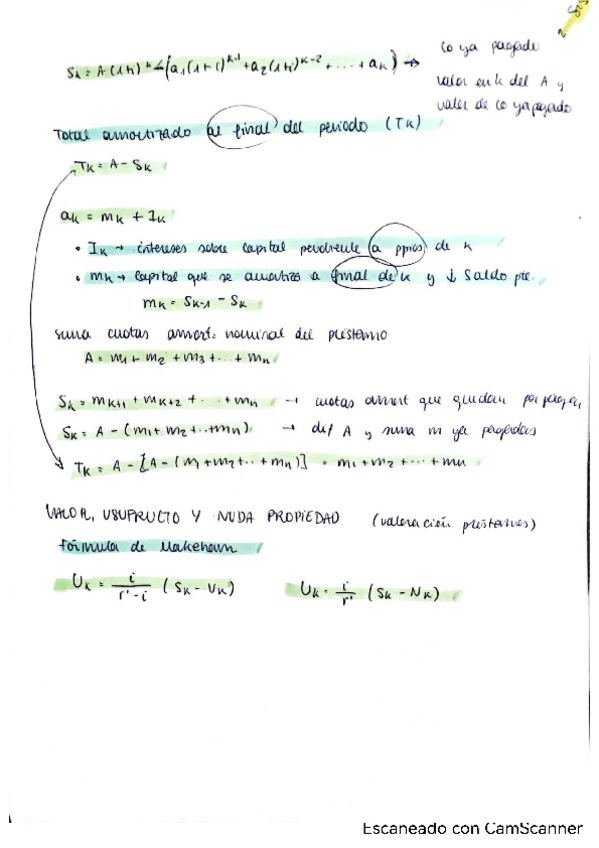 lo ya pagado
Sk = A(1+i)^k - (a1(1+i)^k-1 + a2(1+i)^k-2 + ... + ak) →
valor en k del A y
valor de lo ya pagado
Total amortizado al final del periodo (Tk)
Tk = A - Sk
ak = mk + Ik
• Ik → intereses sobre capital pendiente a ppios de k
• mk → Capital que se amortiza a final de k y ↓ Saldo pte.
mk = Sk-1 - Sk
suma cuotas amort = nominal del préstamo
A = m1 + m2 + m3 + ... + mn
Sk = mk+1 + mk+2 + ... + mn → cuotas amort que quedan por pagar
Sk = A - (m1+m2+..+mn) → dif A y suma m ya pagadas
Tk = A - [A - (m1+m2+..+mn)] = m1+m2+...+mn
VALOR, USUFRUCTO Y NUDA PROPIEDAD (valoración préstamos)
Fórmula de Makeham
Uk = i/r'-i (Sk - Vk) Uk = i/r' (Sk - Nk)
Escaneado con CamScanner